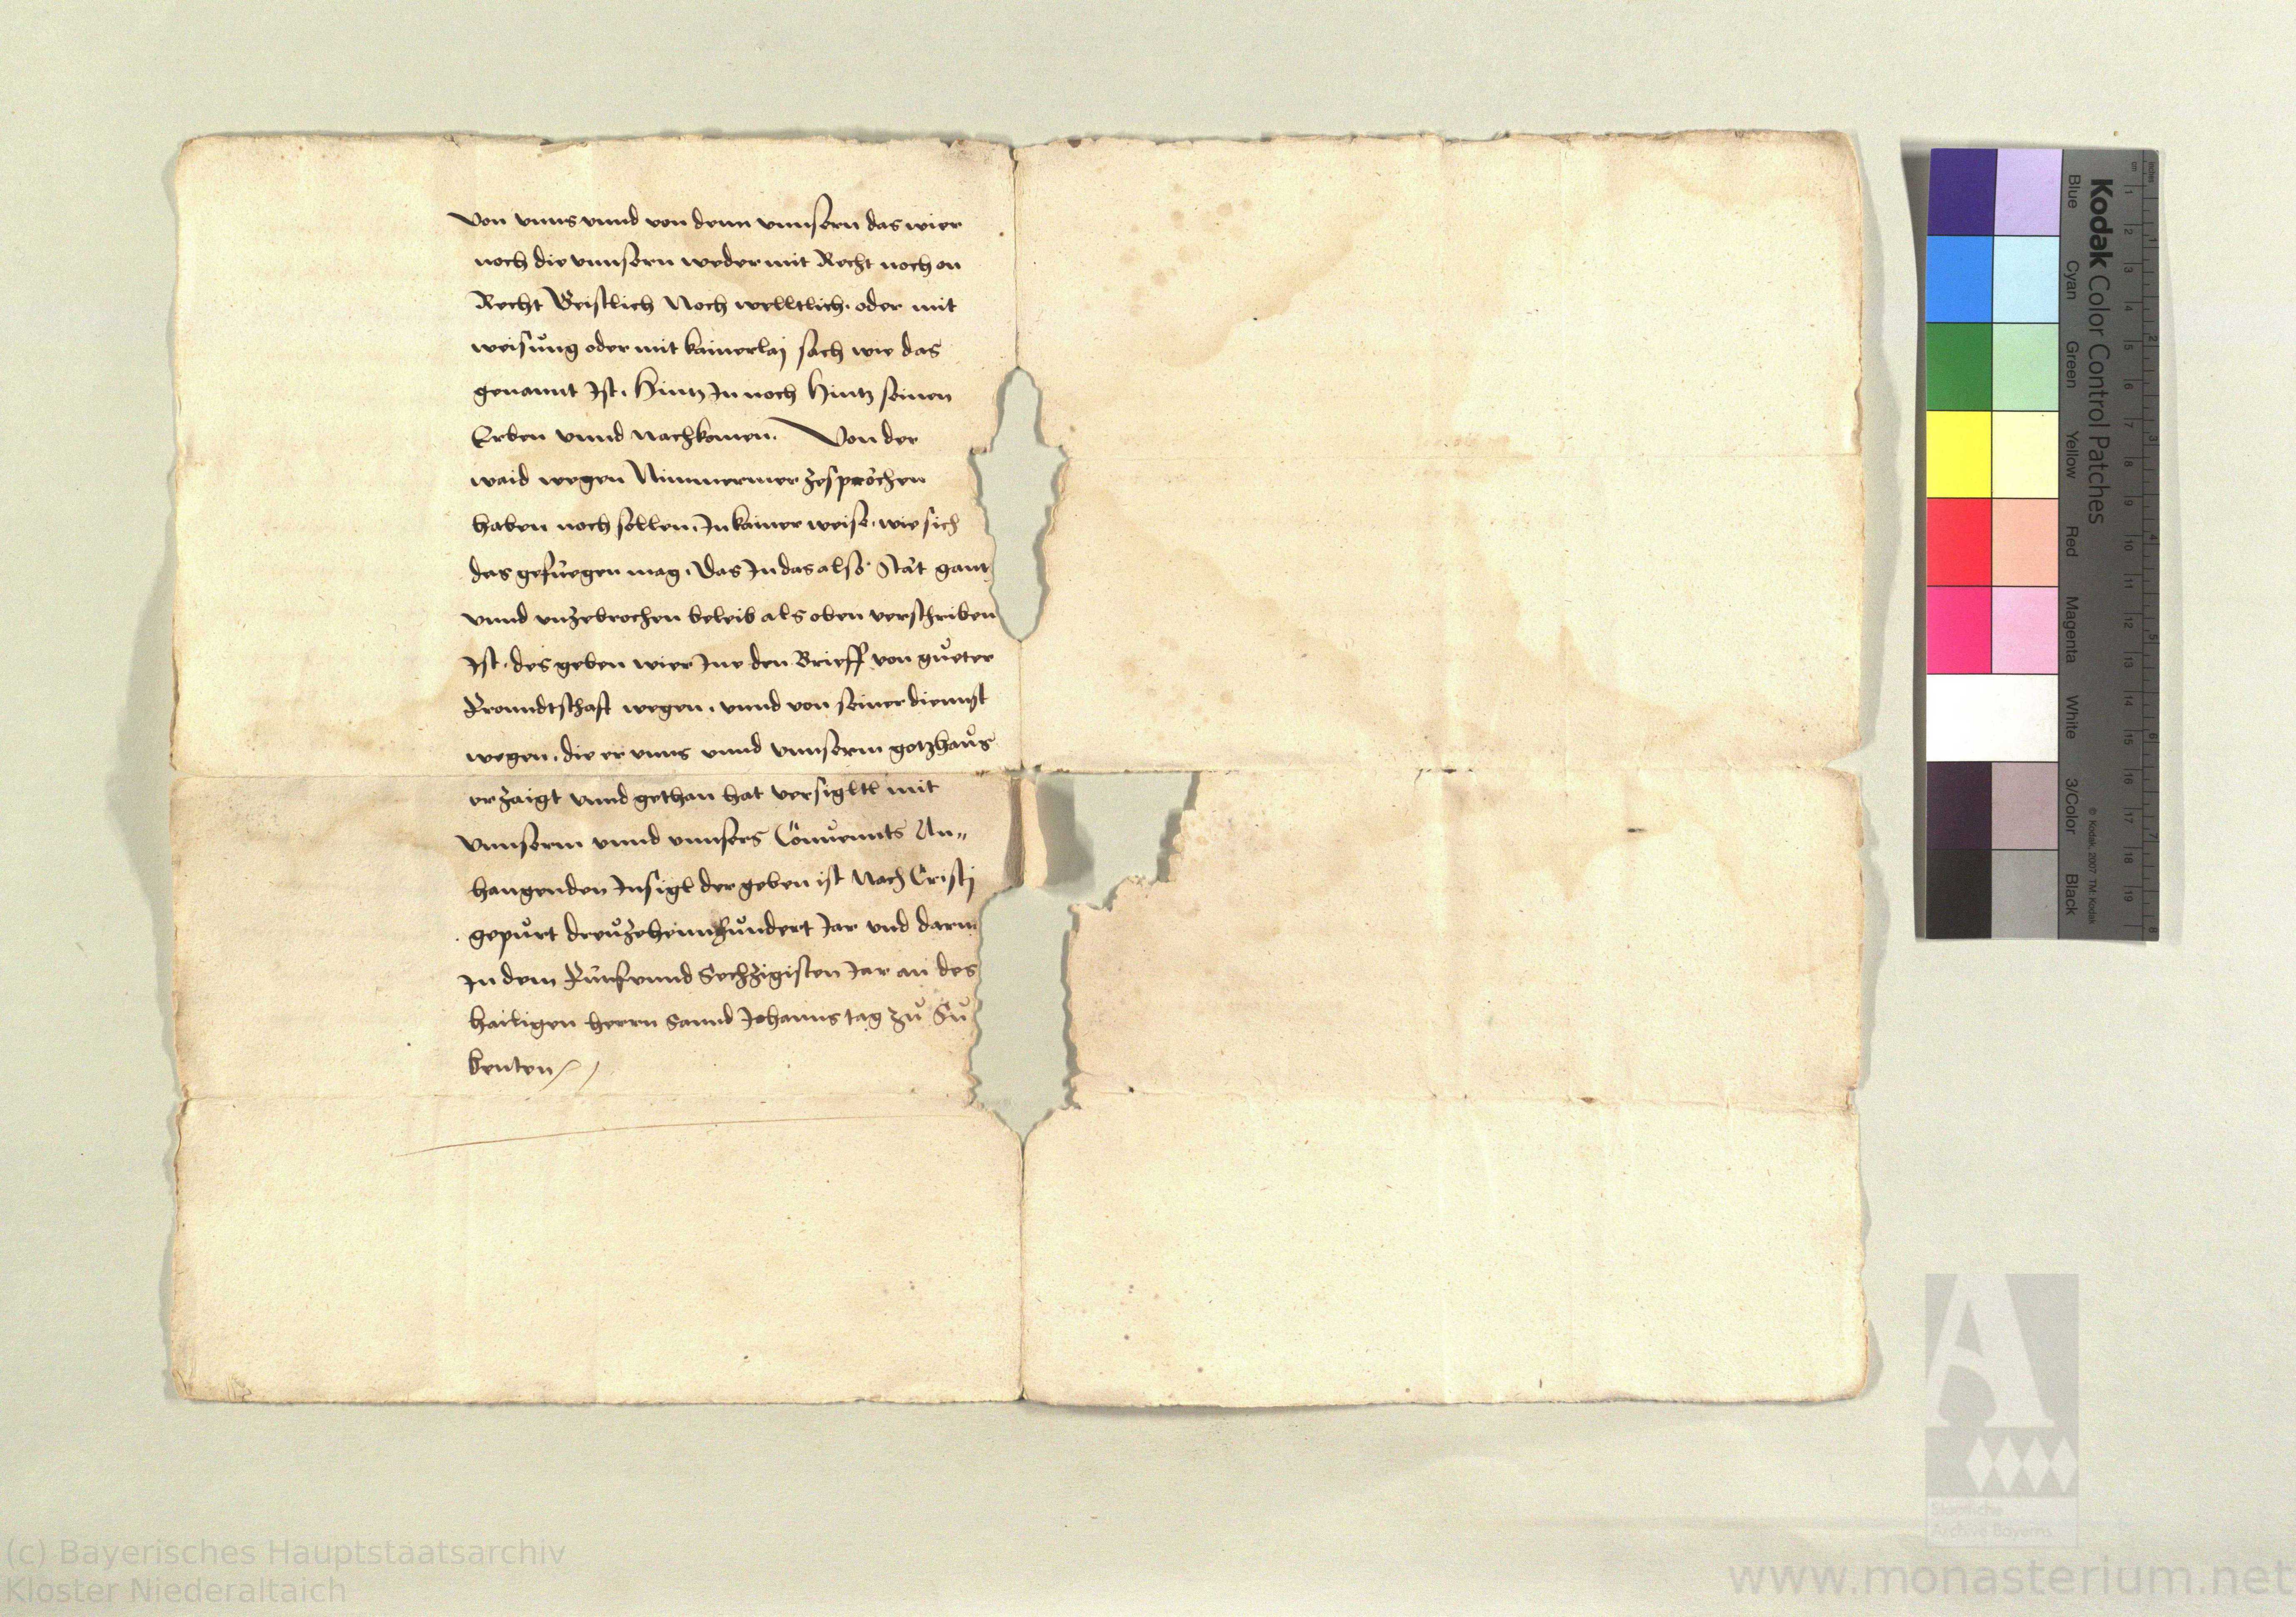 Von unns unnd von denn unnsern das wier
noch die unnsern weder mit Recht noch on
Recht Geistlich Noch welltlich. oder mit
weisung oder mit kainerlaj sach wie das
genannt Ist. Hintz In noch hintz seinen
Erben unnd nachkomen. Von der
waid wegen Nimmermer zesprochen
haben noch sollen. In kainer weise. wie sich
das gefuegen mag. Das In das also Stät gantz
unnd unzebrochen beleib als oben verschriben
Ist. des geben wier Ine den Brieff von gueter
Freundtschaft wegen. unnd von seiner diennst
wegen. die er unns unnd unnserm gotzhaus
erzaigt unnd gethan hat versigltl mit
unnserm unnd unnsers Conuennts An„
hangenden Insigl der geben ist Nach Cristj
gepurt dreuzehennhundert Jar und darn
In dem Funfunnd Sechzigisten Jar an des
hailigen herrn Sannd Johanns tag zu Su
benten
Kodak Color Control Patches
Blue Cyan Green Yellow Red Magenta White 3/Color Black
© Kodak, 2007 TM: Kodak
inches
cm
1 2 3 4 5 6 7 8 9 10 11 12 13 14 15 16 17 18 19
Staatliche
Archive Bayerns
(c) Bayerisches Hauptstaatsarchiv
Kloster Niederaltaich
www.monasterium.net